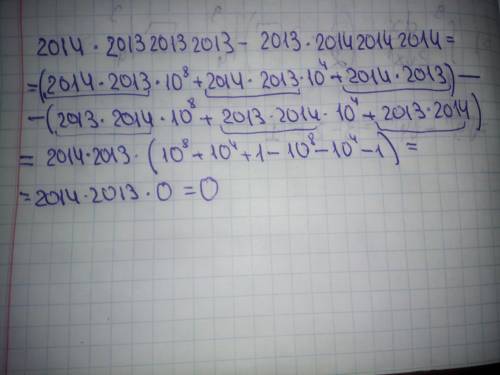 2014 · 2013 2013 2013 - 2013 · 2014 2014 2014 =
= (2014 · 2013 · 10⁸ + 2014 · 2013 · 10⁴ + 2014 · 2013) -
- (2013 · 2014 · 10⁸ + 2013 · 2014 · 10⁴ + 2013 · 2014)
= 2014 · 2013 · (10⁸ + 10⁴ + 1 - 10⁸ - 10⁴ - 1) =
= 2014 · 2013 · 0 = 0